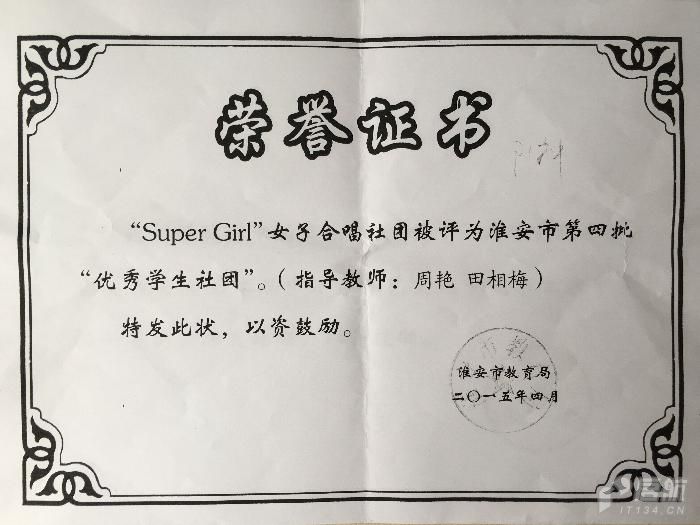 荣誉证书
“Super Girl”女子合唱社团被评为淮安市第四批
“优秀学生社团”。(指导教师：周艳 田相梅)
特发此状，以资鼓励。
淮安市教育局
二〇一五年四月
IT134.CN